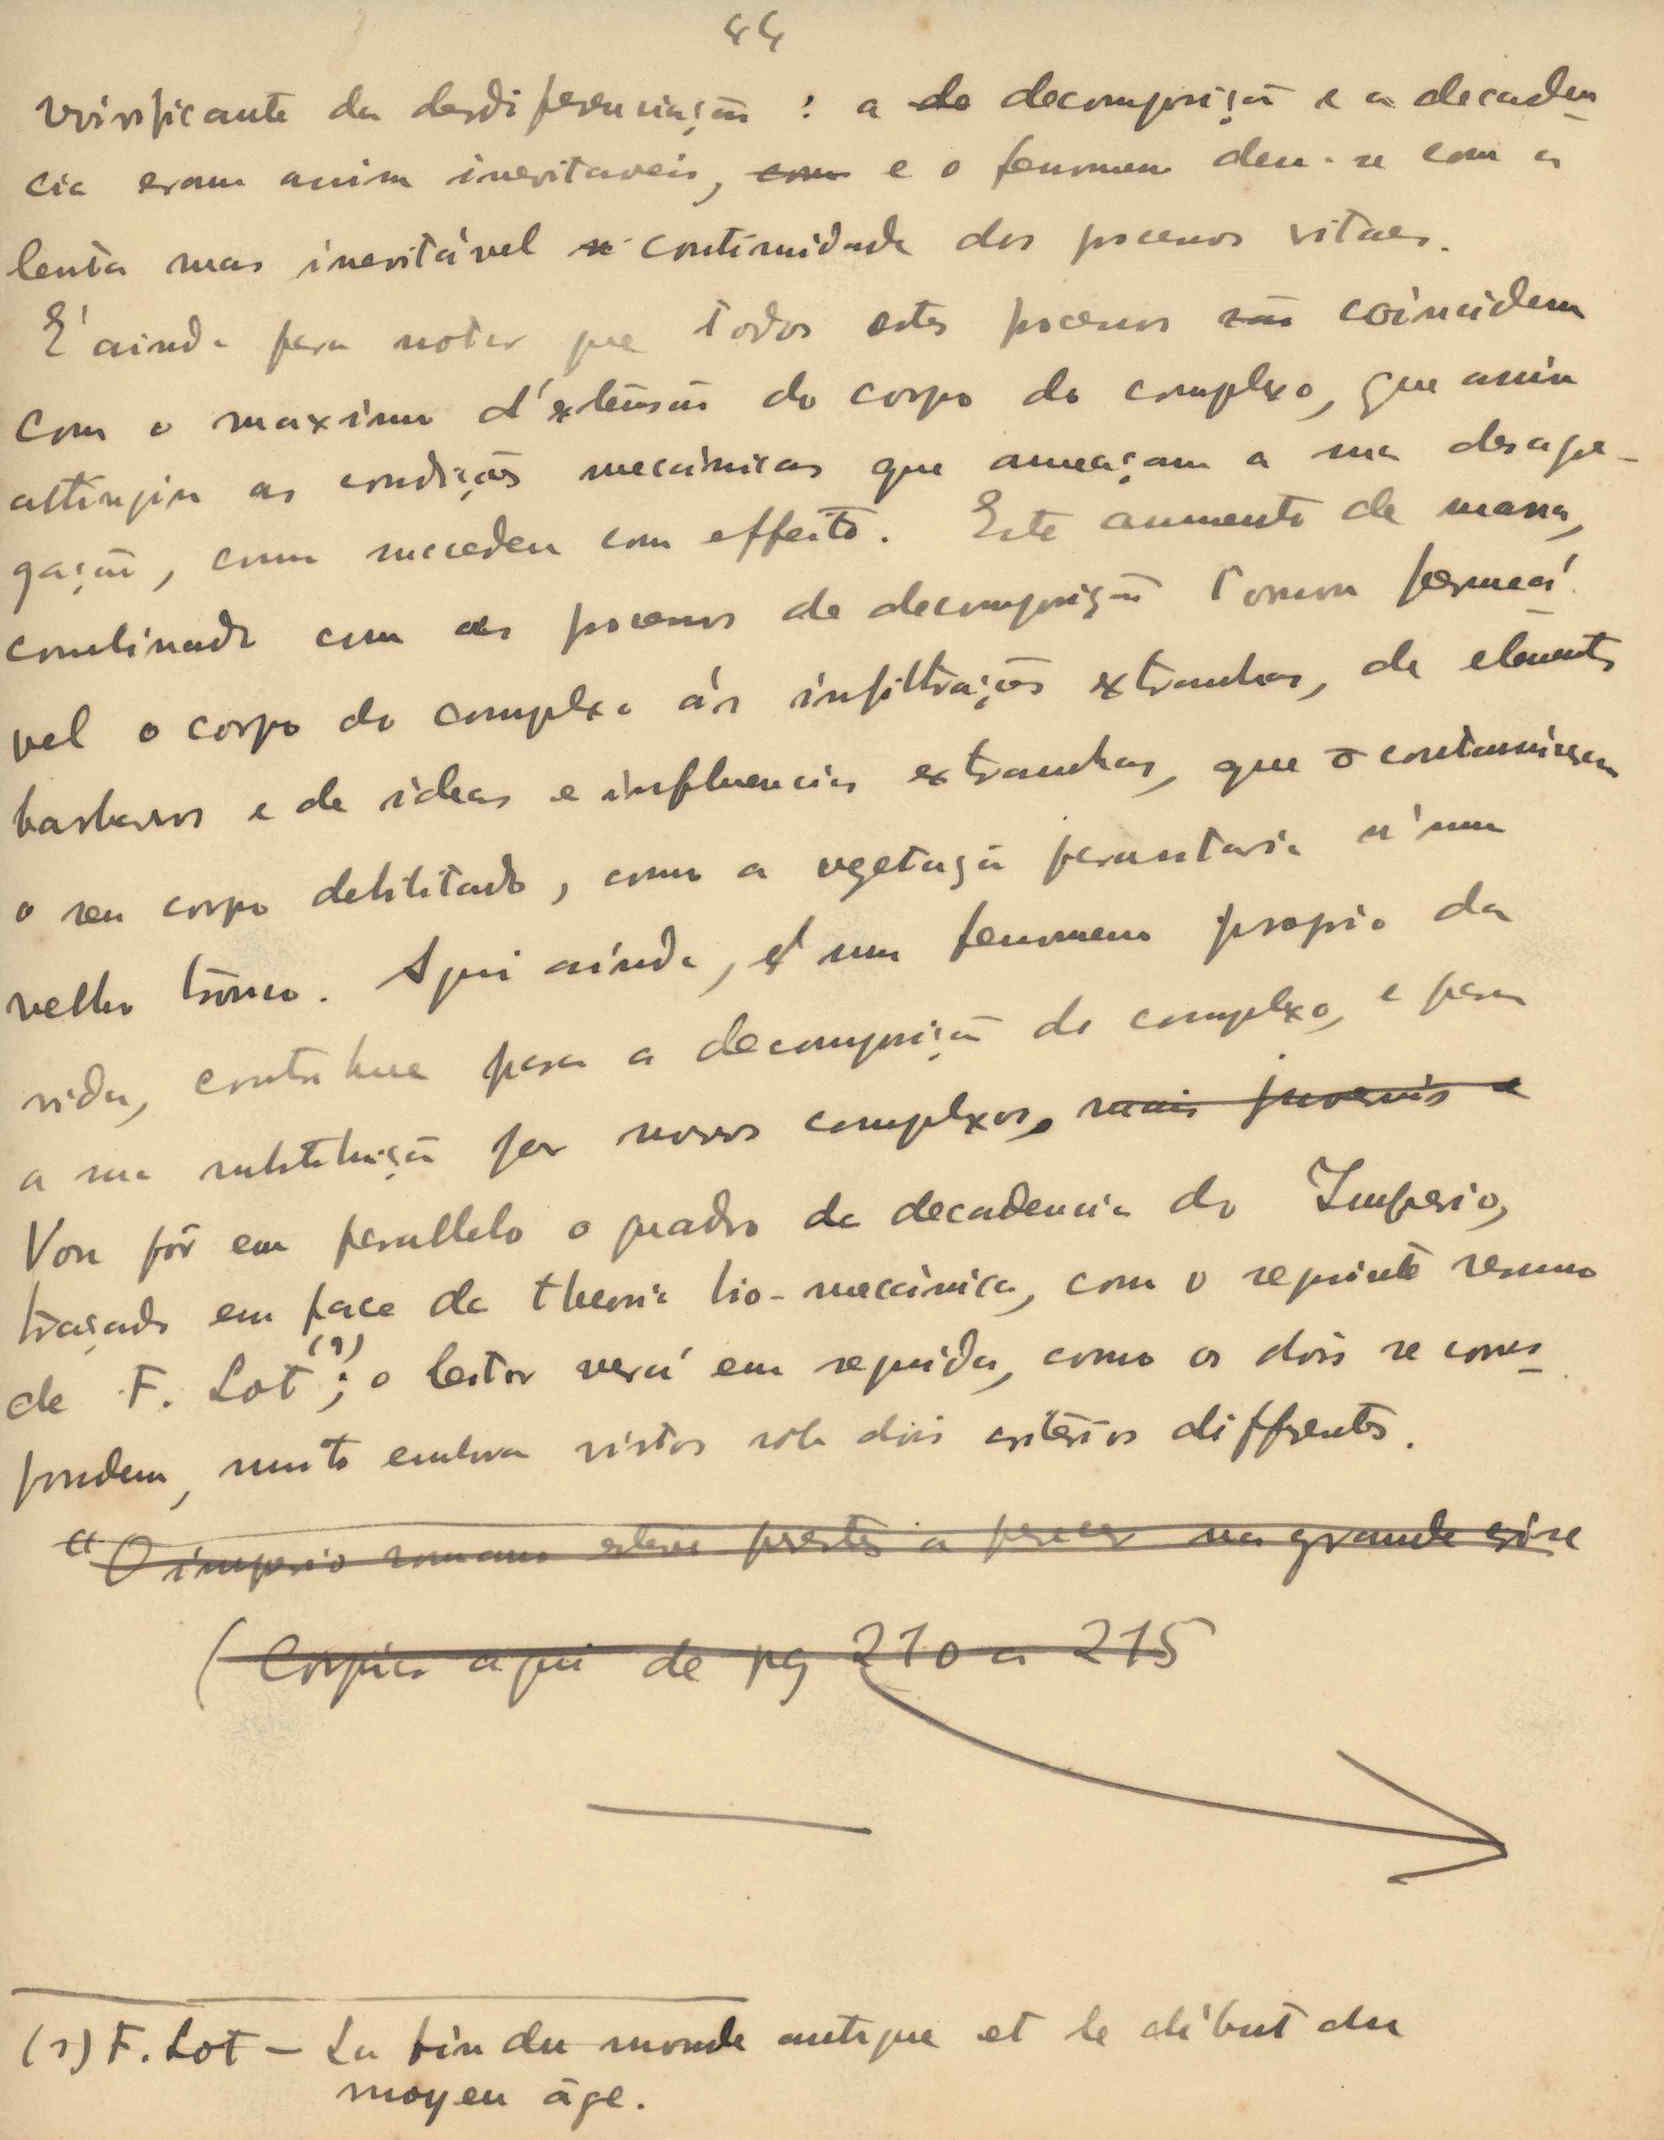 44
vivificante da desdiferenciação : a de decomposição e a decaden-
cia eram assim inevitaveis, com e o fenomeno deu-se com a
lenta mas inevitável continuidade dos processos vitaes.
É ainda para notar que todos estes processos são coincidem
com o maximo d'extensão do corpo do complexo, que assim
attingiu as condições mecânicas que ameaçam a sua desagre-
gação, como succedeu com effeito. Este aumento de massa,
combinado com os processos de decomposição tornou permeá-
vel o corpo do complexo ás infiltrações extranhas, de elementos
barbaros e de ideas e influencias extranhas, que contaminam
o seu corpo debilitado, como a vegetação parasitaria n'um
velho tronco. Aqui ainda, é um fenomeno proprio da
vida, contribue para a decomposição do complexo, e para
a sua substituição por novos complexos, mais juvenis e
Vou pôr em parallelo o quadro da decadencia do Imperio,
traçado em face da theoria bio-mecânica, com o seguinte resumo
de F. Lot (1); o leitor verá em seguida, como os dois se corres-
pondem, muito embora vistos sob dois critérios differentes.
"O imperio romano esteve prestes a perecer na grande crise
( Copiar aqui de pg 210 a 215
(1) F. Lot – La fin du monde antique et le début du
moyen âge.